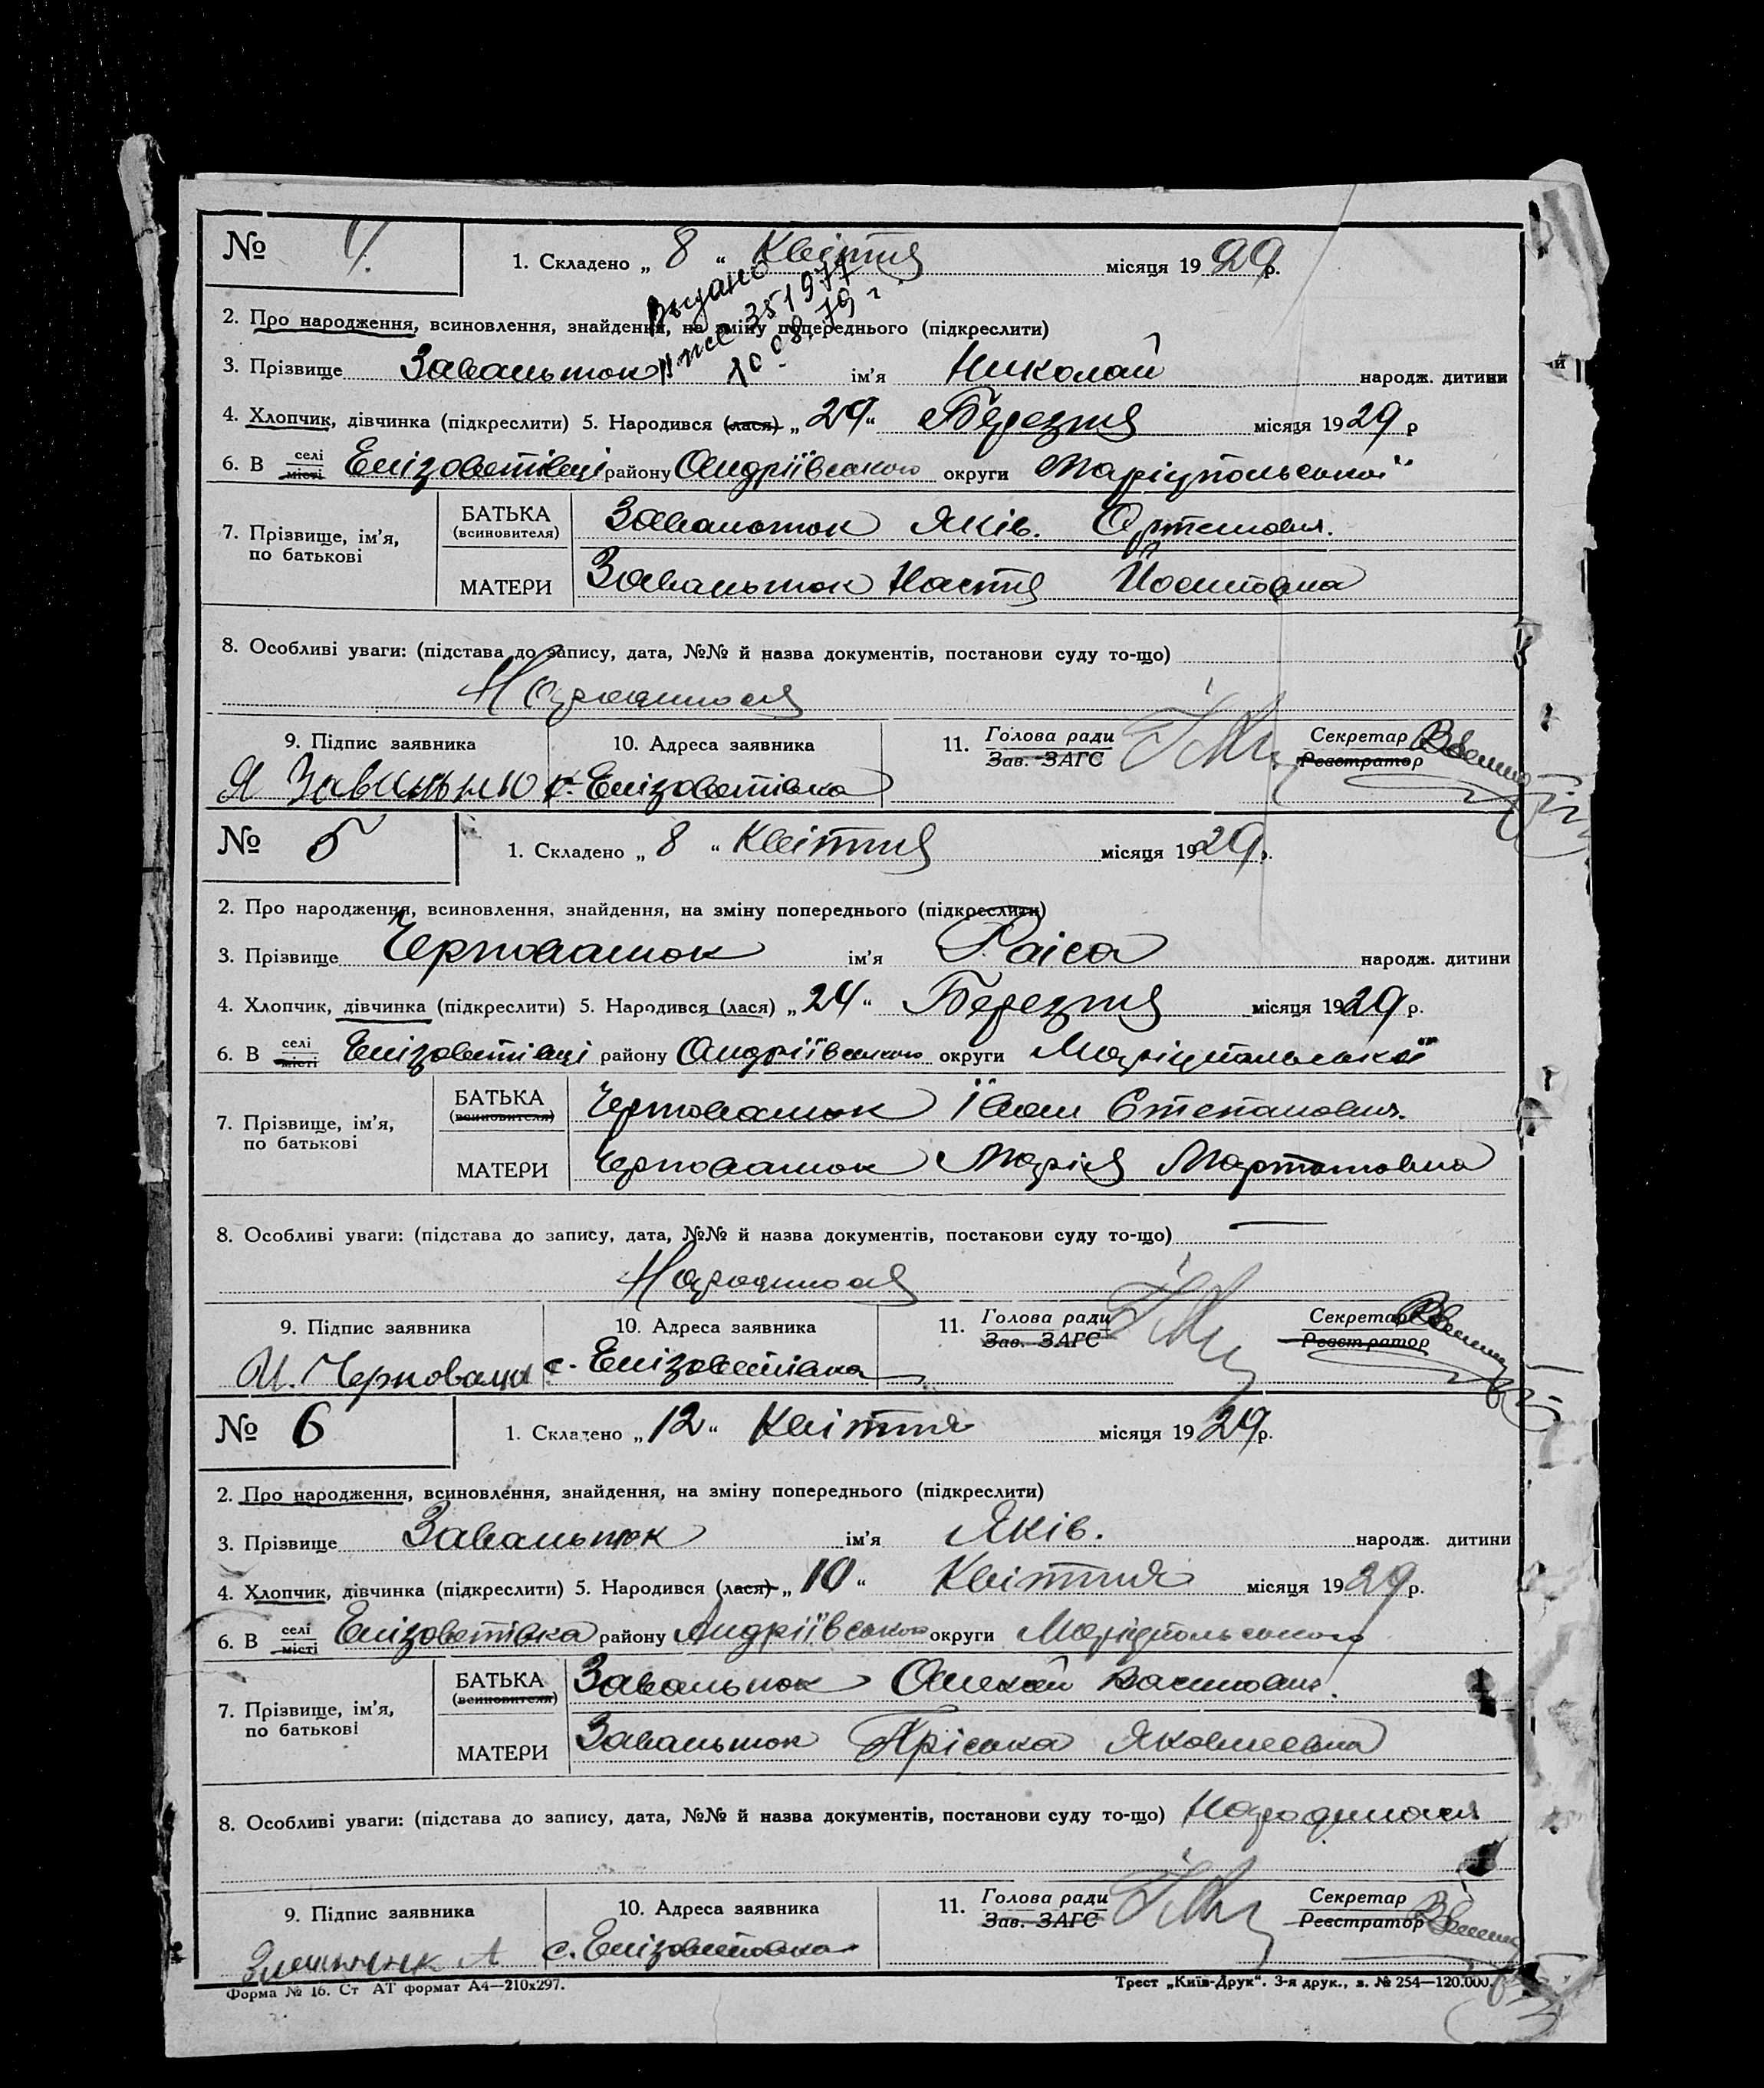 № 4. 1. Складено „ 8 “ Квітня місяця 1929 р.
Выдано
351977
10 08 79 г.
2. Про народження, всиновлення, знайдення, на зміну попереднього (підкреслити)
3. Прізвище Завальнюк ім’я Николай народж. дитини
4. Хлопчик, дівчинка (підкреслити) 5. Народився (лася) „ 29 “ Березня місяця 1929 р
6. В селі місті Елізоветівці району Андріївського округи Маріупольської
7. Прізвище, ім’я, по батькові
БАТЬКА (всиновителя) Завальнюк Яків. Артемович.
МАТЕРИ Завальнюк Настя Йосиповна
8. Особливі уваги: (підстава до запису, дата, №№ й назва документів, постанови суду то-що)
Народився
9. Підпис заявника 10. Адреса заявника 11. Голова ради Зав. ЗАГС Секретар Реєстратор
Я с. Елізоветівка
№ 5 1. Складено „ 8 “ Квітня місяця 1929 р.
2. Про народження, всиновлення, знайдення, на зміну попереднього (підкреслити)
3. Прізвище Черноващок ім’я Раіса народж. дитини
4. Хлопчик, дівчинка (підкреслити) 5. Народився (лася) „ 24 “ Березня місяця 1929 р.
6. В селі місті Елізоветівці району Андріївського округи Маріупольської
7. Прізвище, ім’я, по батькові
БАТЬКА (всиновителя) Черноващок Іван Степанович.
МАТЕРИ Черноващок Марія
8. Особливі уваги: (підстава до запису, дата, №№ й назва документів, постанови суду то-що) —
Народилася
9. Підпис заявника 10. Адреса заявника 11. Голова ради Зав. ЗАГС Секретар Реєстратор
И. Черноващ с. Елізоветівка
№ 6 1. Складено „ 12 “ Квітня місяця 1929 р.
2. Про народження, всиновлення, знайдення, на зміну попереднього (підкреслити)
3. Прізвище Завальнюк ім’я Яків. народж. дитини
4. Хлопчик, дівчинка (підкреслити) 5. Народився (лася) „ 10 “ Квітня місяця 1929 р.
6. В селі місті Елізоветівка району Андріївського округи Маріупольського
7. Прізвище, ім’я, по батькові
БАТЬКА (всиновителя) Завальнюк Василович.
МАТЕРИ Завальнюк Пріська Яковлевна
8. Особливі уваги: (підстава до запису, дата, №№ й назва документів, постанови суду то-що) Народився
9. Підпис заявника 10. Адреса заявника 11. Голова ради Зав. ЗАГС Секретар Реєстратор
с. Елізоветовка
Форма № 16. Ст АТ формат А4—210х297. Трест „Київ-Друк“. 3-я друк., з. № 254—120.000.